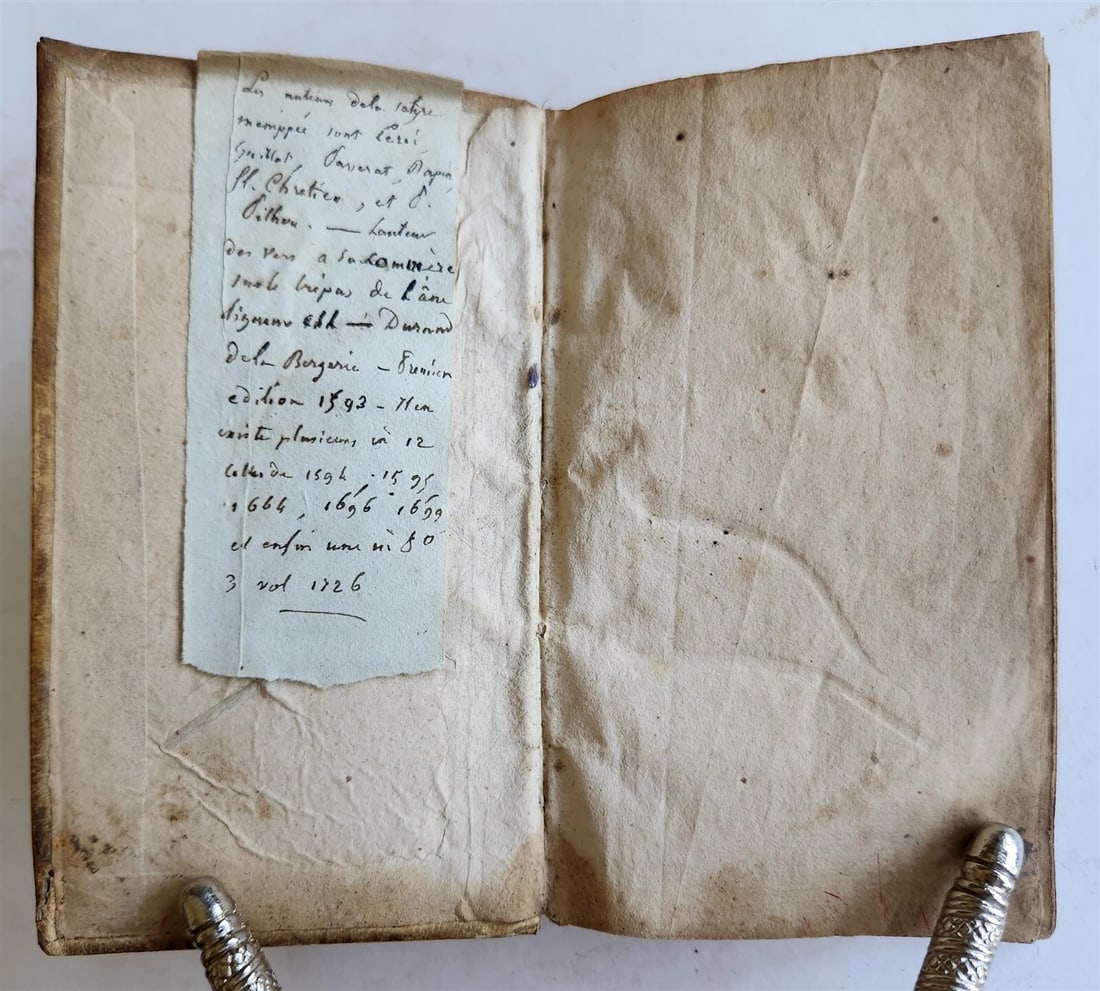 Les auteurs dela satyre
menippée sont Leroi,
Guillot, Passerat, Rapin,
fl. Chrétien, et P.
Pithou. — Lauteur
des vers a sa commère
sur le trépas de l'âne
ligueur est — Durand
dela Bergerie — Premiere
edition 1593 — Il en
existe plusieurs in 12
celles de 1594 - 1595
1664, 1696 1699
et enfin une in 8°
3 vol 1726